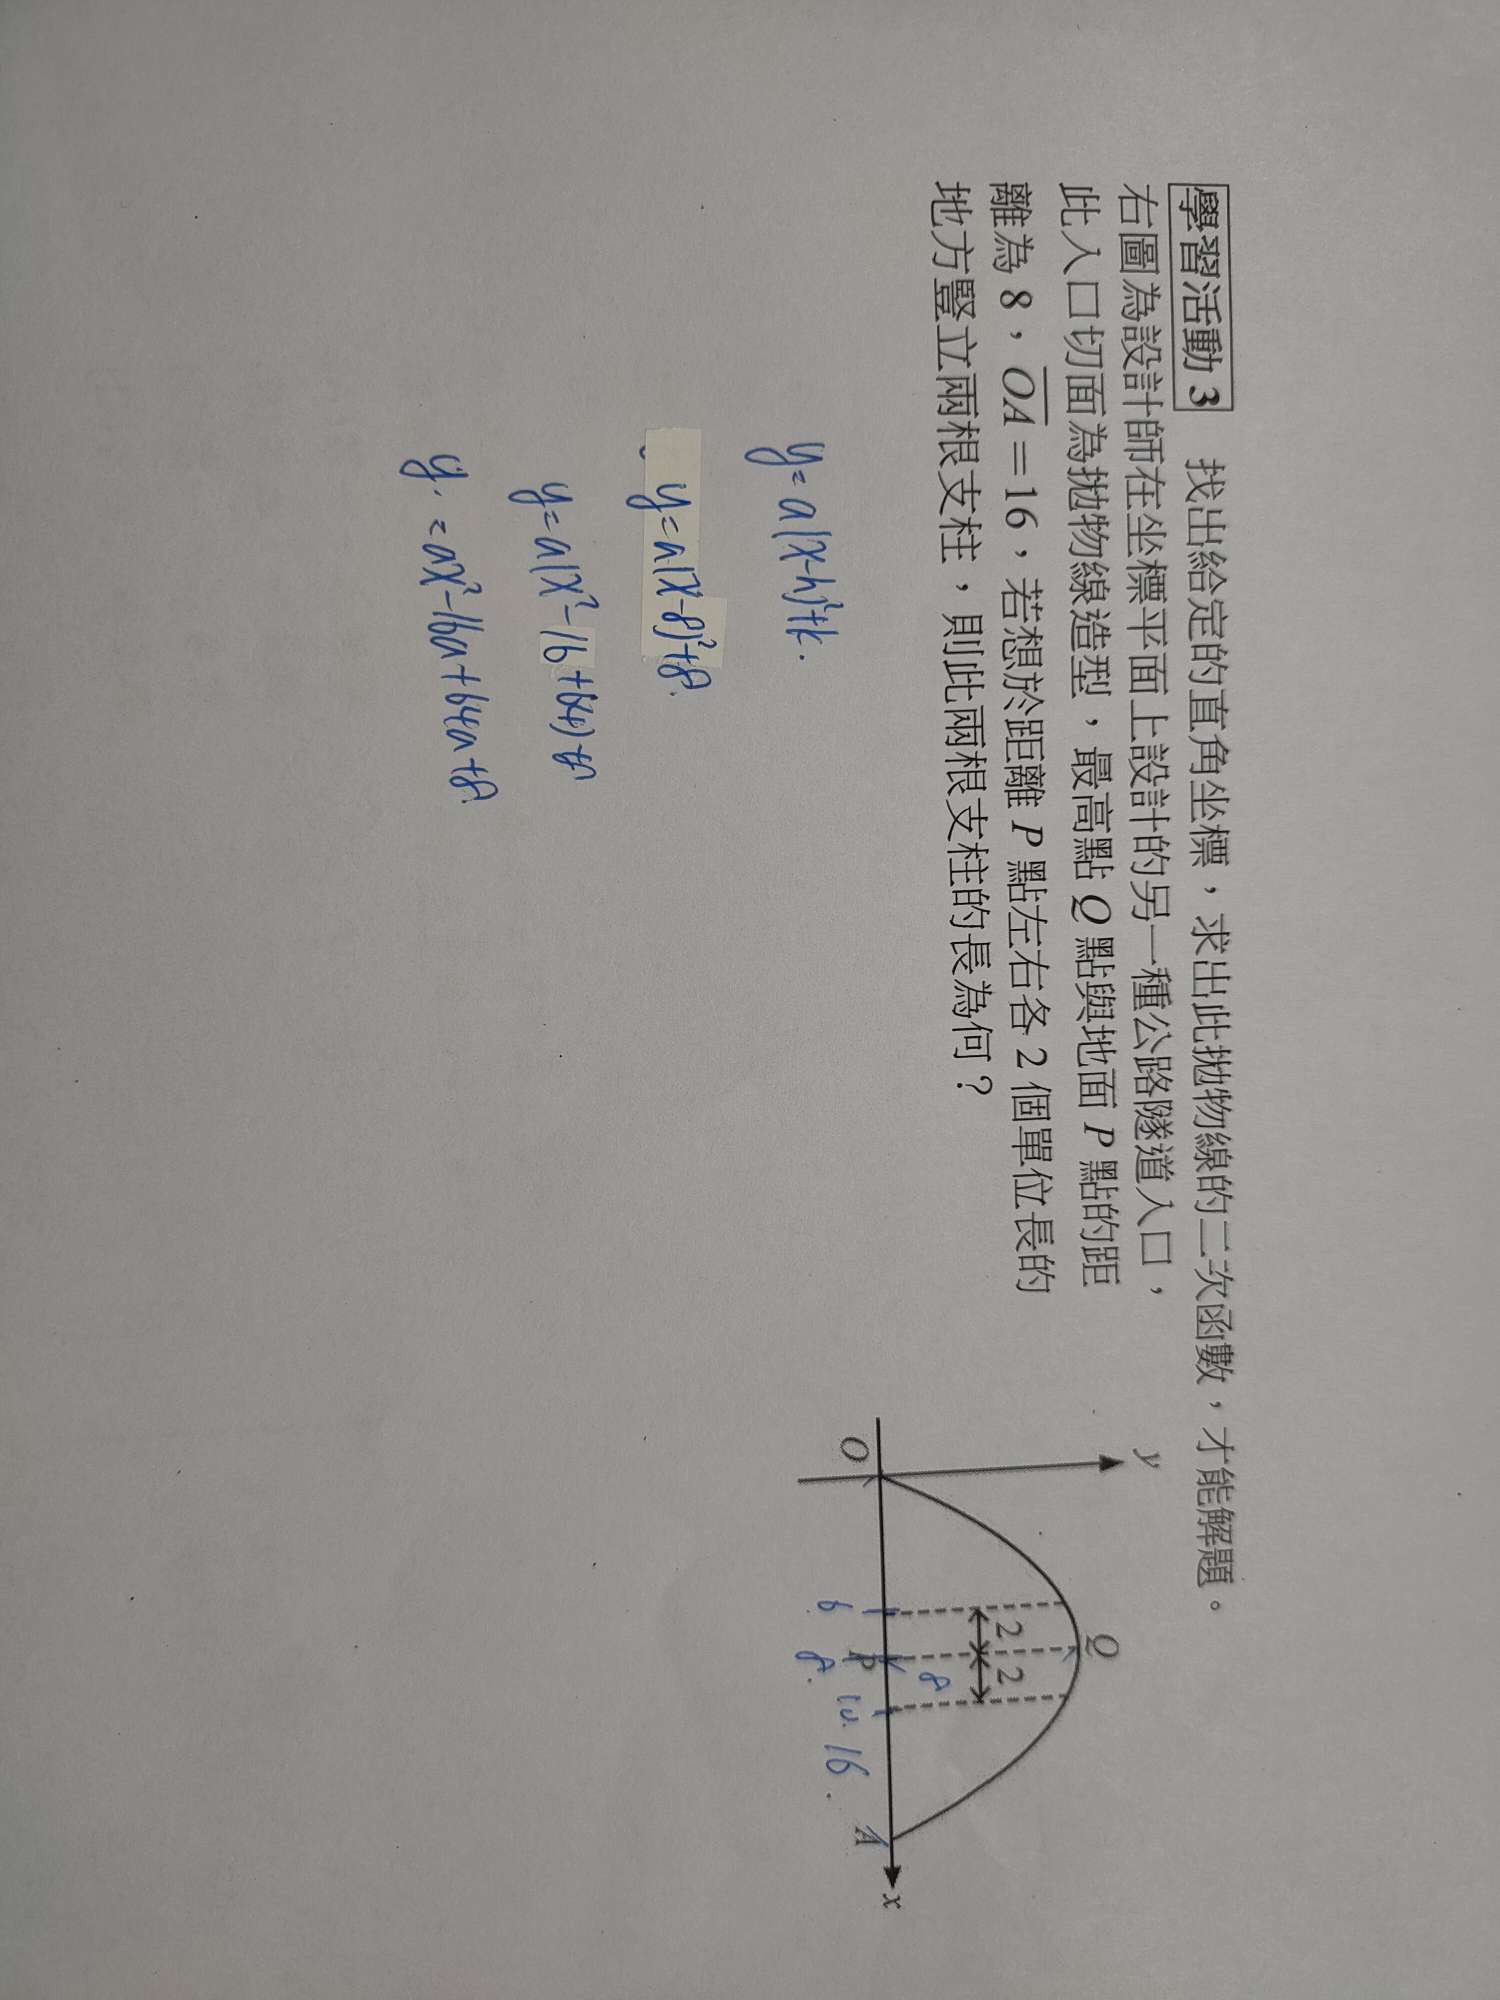 學習活動 3　找出給定的直角坐標，求出此拋物線的二次函數，才能解題。
右圖為設計師在坐標平面上設計的另一種公路隧道入口，
此入口切面為拋物線造型，最高點 Q 點與地面 P 點的距
離為 8，OA＝16，若想於距離 P 點左右各 2 個單位長的
地方豎立兩根支柱，則此兩根支柱的長為何？
y
Q
2 2
8
O
P
A
x
6
8.
10.
16.
y=a(x-h)²+k.
y=a(x-8)²+8.
y=a(x²-16+64)+8
y.=ax²-16a+64a+8.